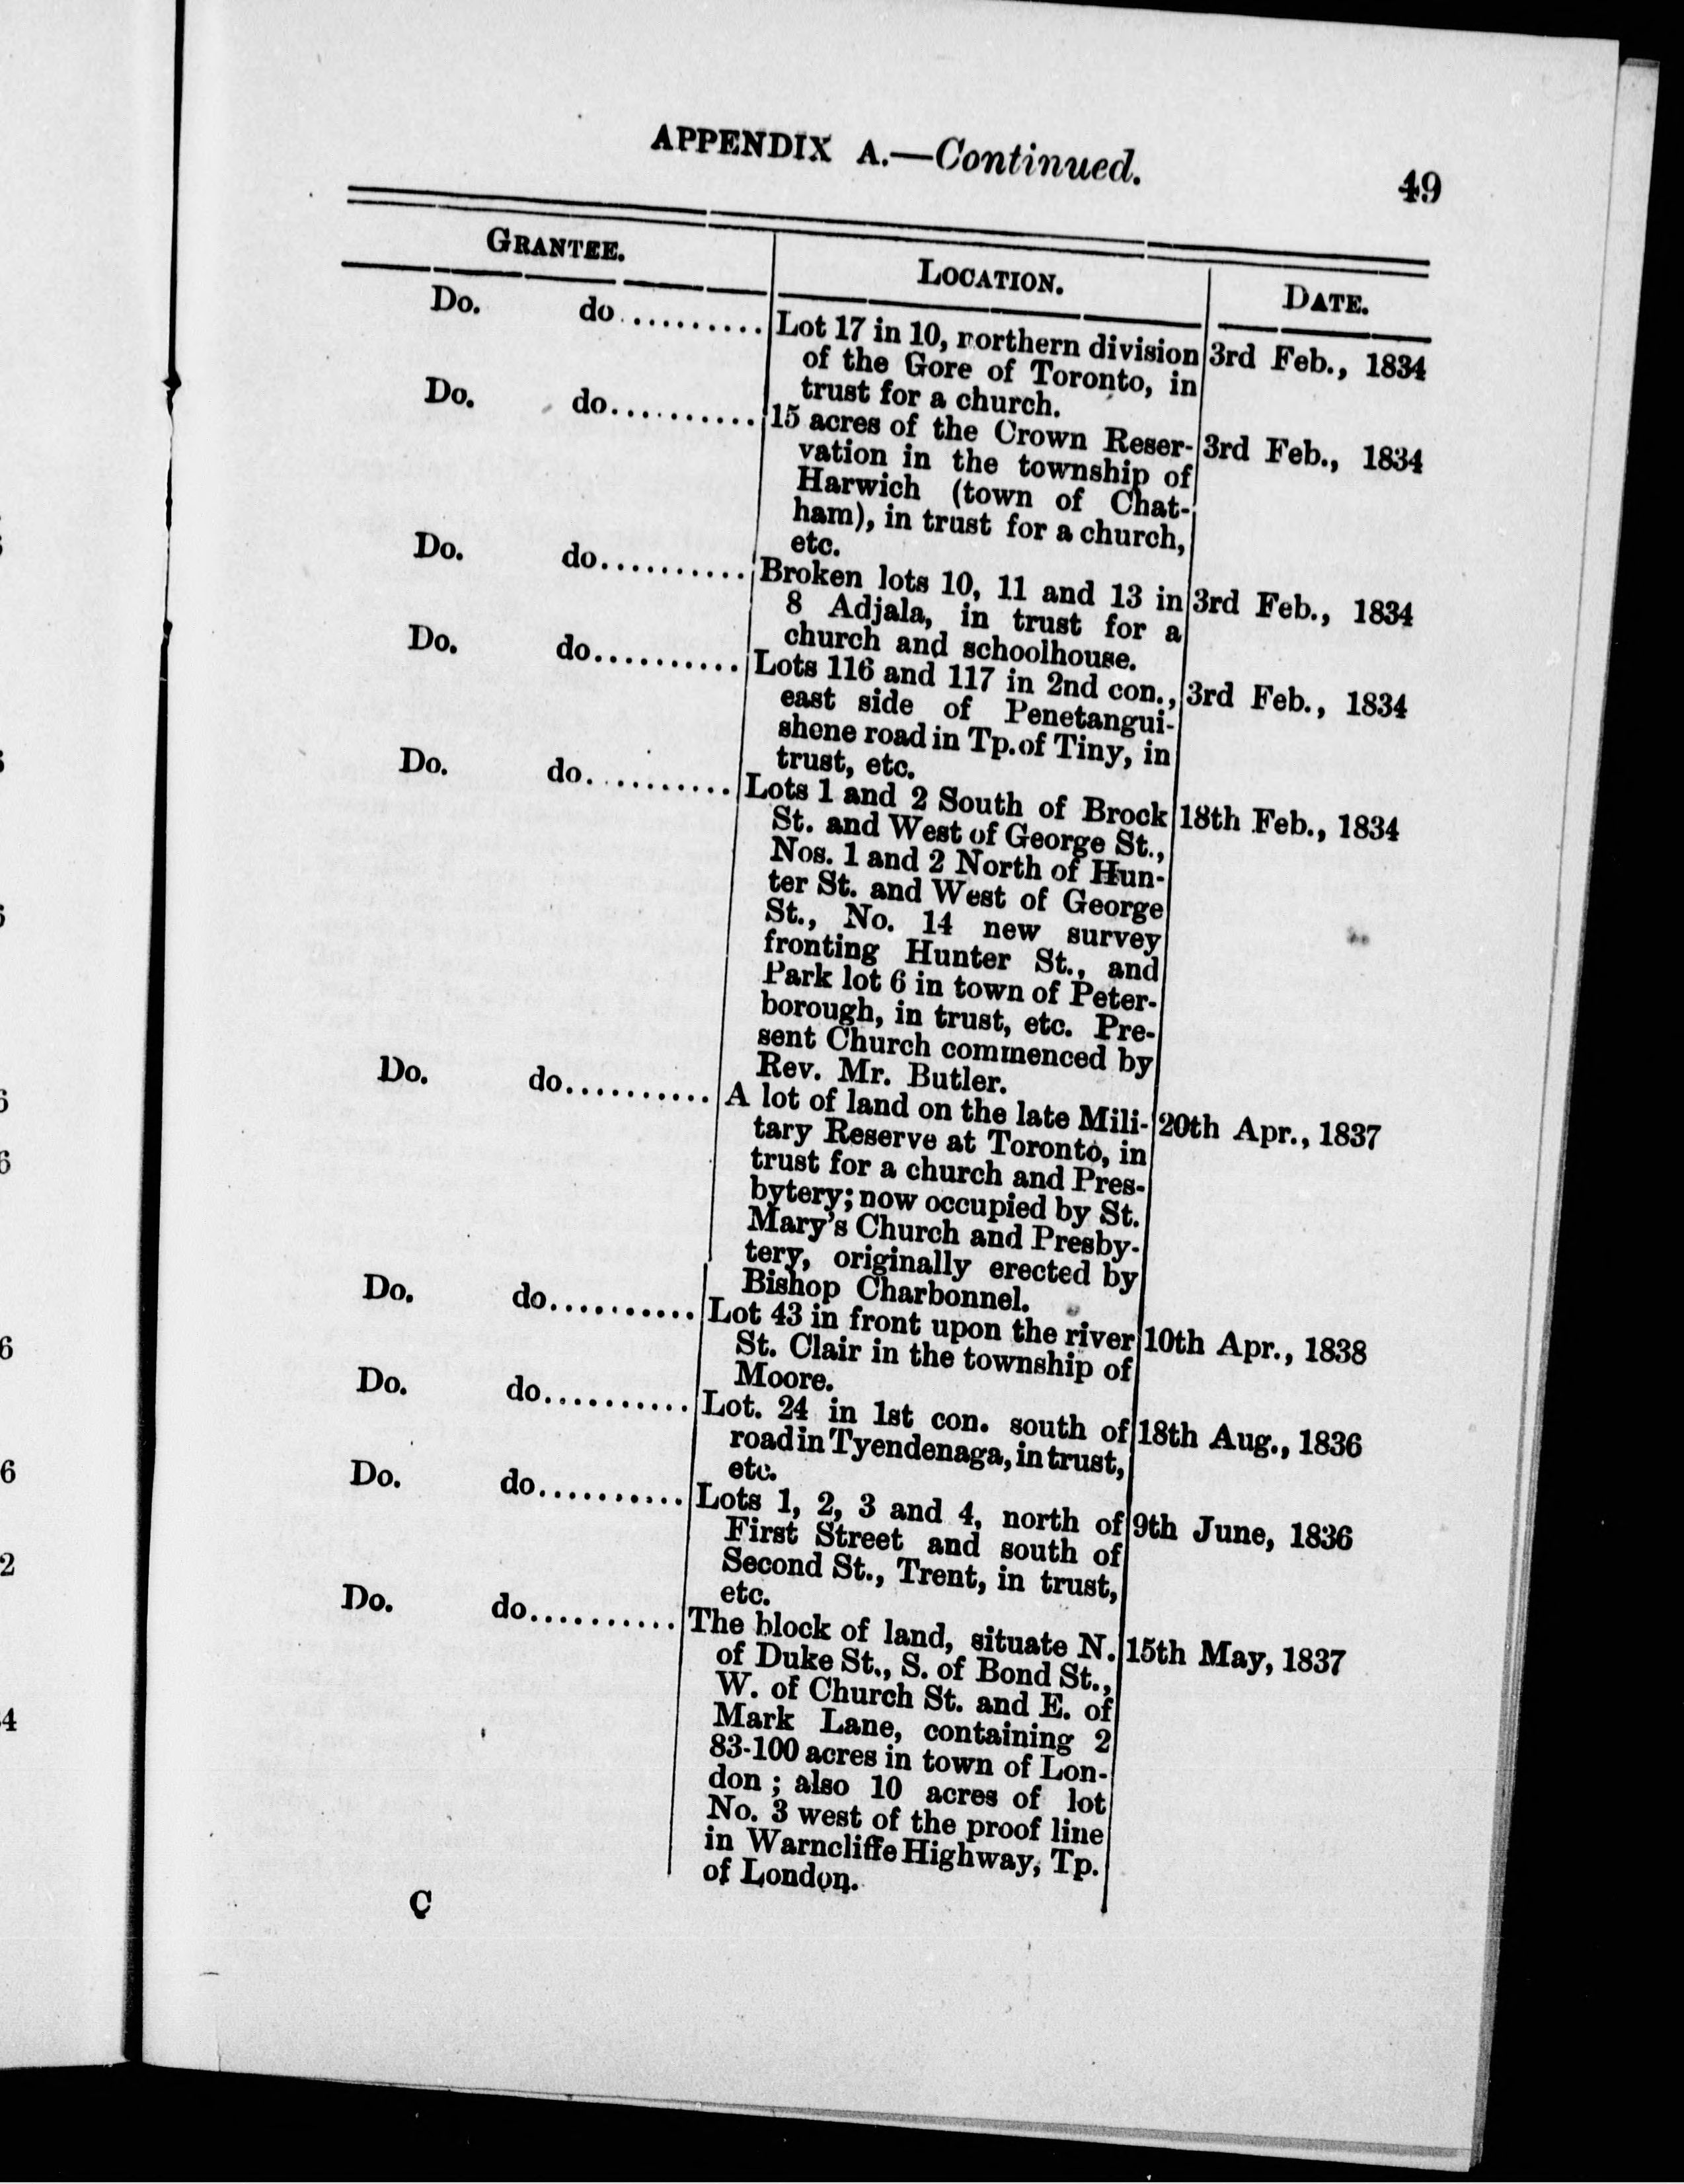 APPENDIX A.—Continued.
49
GRANTEE.
LOCATION.
DATE.
Do. do.......... Lot 17 in 10, northern division 3rd Feb., 1834
of the Gore of Toronto, in
trust for a church.
Do. do.......... 15 acres of the Crown Reser- 3rd Feb., 1834
vation in the township of
Harwich (town of Chat-
ham), in trust for a church,
etc.
Do. do.......... Broken lots 10, 11 and 13 in 3rd Feb., 1834
8 Adjala, in trust for a
church and schoolhouse.
Do. do.......... Lots 116 and 117 in 2nd con., 3rd Feb., 1834
east side of Penetangui-
shene road in Tp. of Tiny, in
trust, etc.
Do. do.......... Lots 1 and 2 South of Brock 18th Feb., 1834
St. and West of George St.,
Nos. 1 and 2 North of Hun-
ter St. and West of George
St., No. 14 new survey
fronting Hunter St., and
Park lot 6 in town of Peter-
borough, in trust, etc. Pre-
sent Church commenced by
Rev. Mr. Butler.
Do. do.......... A lot of land on the late Mili- 20th Apr., 1837
tary Reserve at Toronto, in
trust for a church and Pres-
bytery; now occupied by St.
Mary's Church and Presby-
tery, originally erected by
Bishop Charbonnel.
Do. do.......... Lot 43 in front upon the river 10th Apr., 1838
St. Clair in the township of
Moore.
Do. do.......... Lot. 24 in 1st con. south of 18th Aug., 1836
road in Tyendenaga, in trust,
etc.
Do. do.......... Lots 1, 2, 3 and 4, north of 9th June, 1836
First Street and south of
Second St., Trent, in trust,
etc.
Do. do.......... The block of land, situate N. 15th May, 1837
of Duke St., S. of Bond St.,
W. of Church St. and E. of
Mark Lane, containing 2
83-100 acres in town of Lon-
don; also 10 acres of lot
No. 3 west of the proof line
in Warncliffe Highway, Tp.
of London.
C